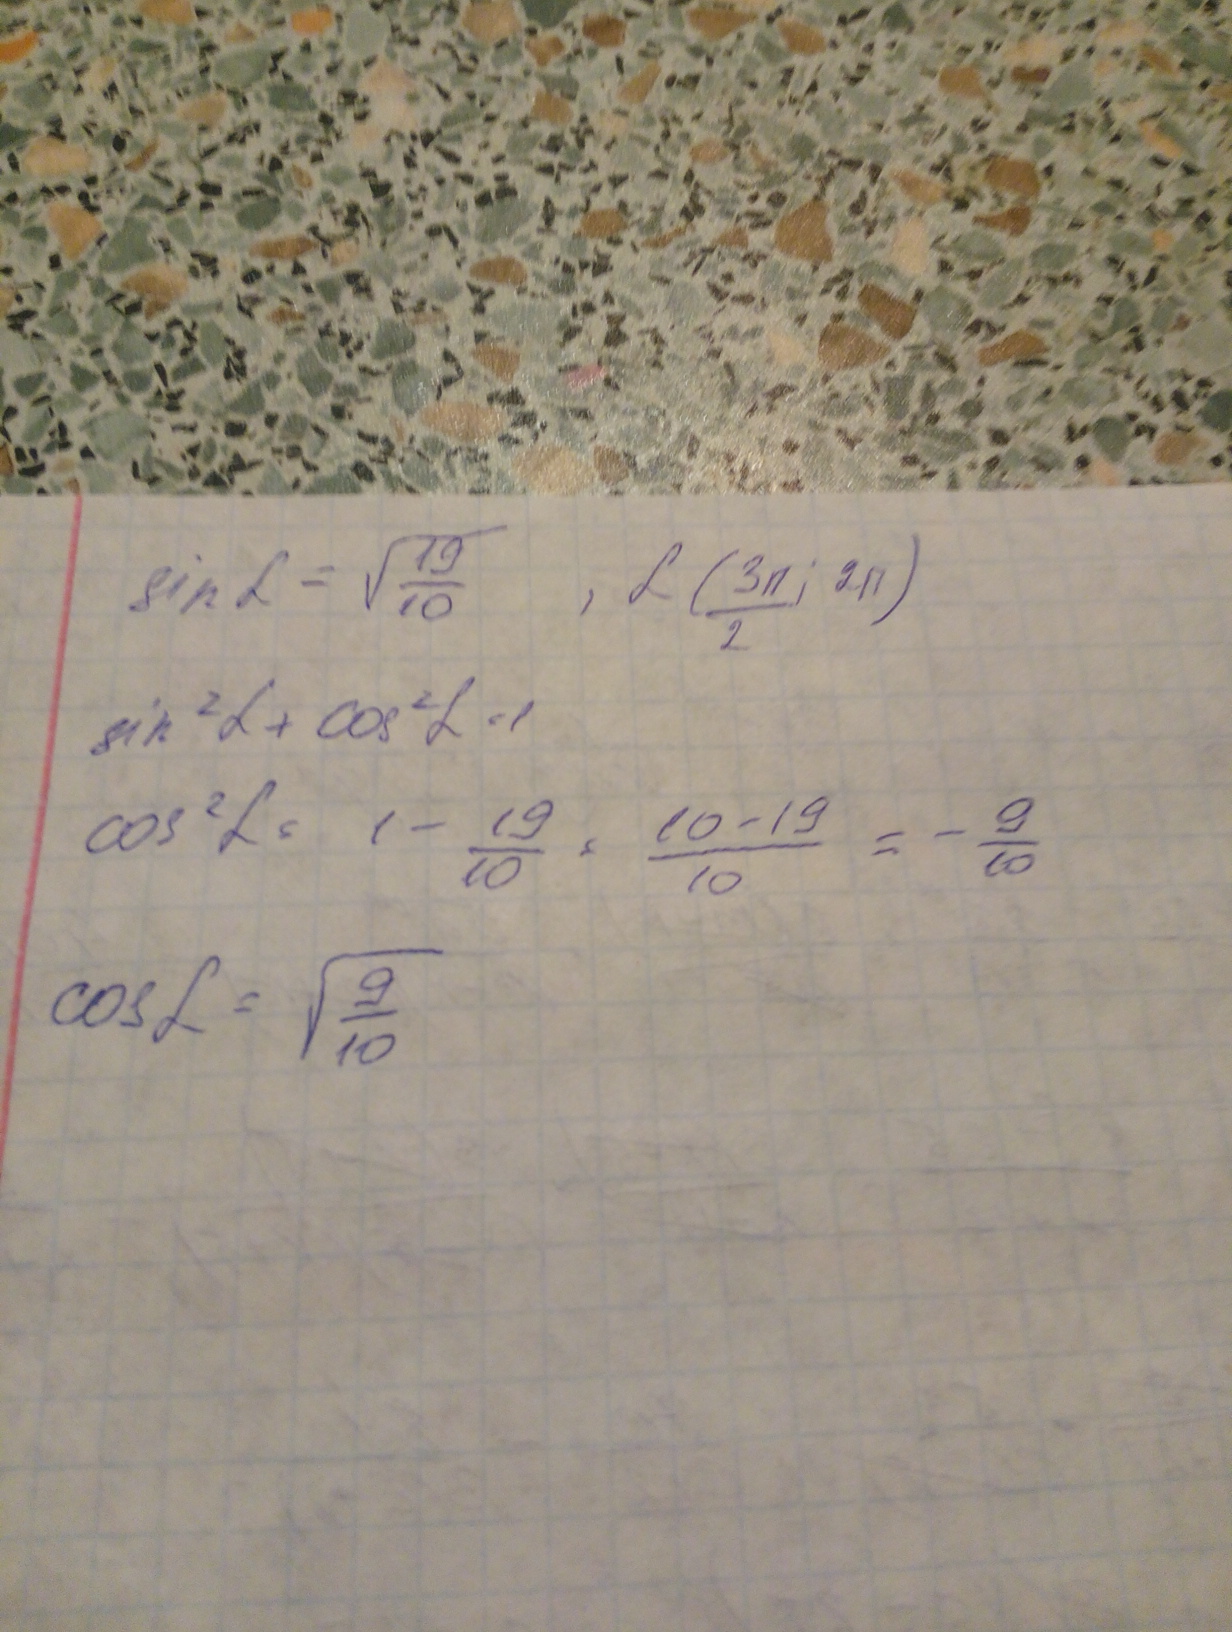 sin α = √19/10 , α (3π/2; 2π)
sin²α + cos²α = 1
cos²α = 1 - 19/10 = 10-19/10 = - 9/10
cos α = √9/10